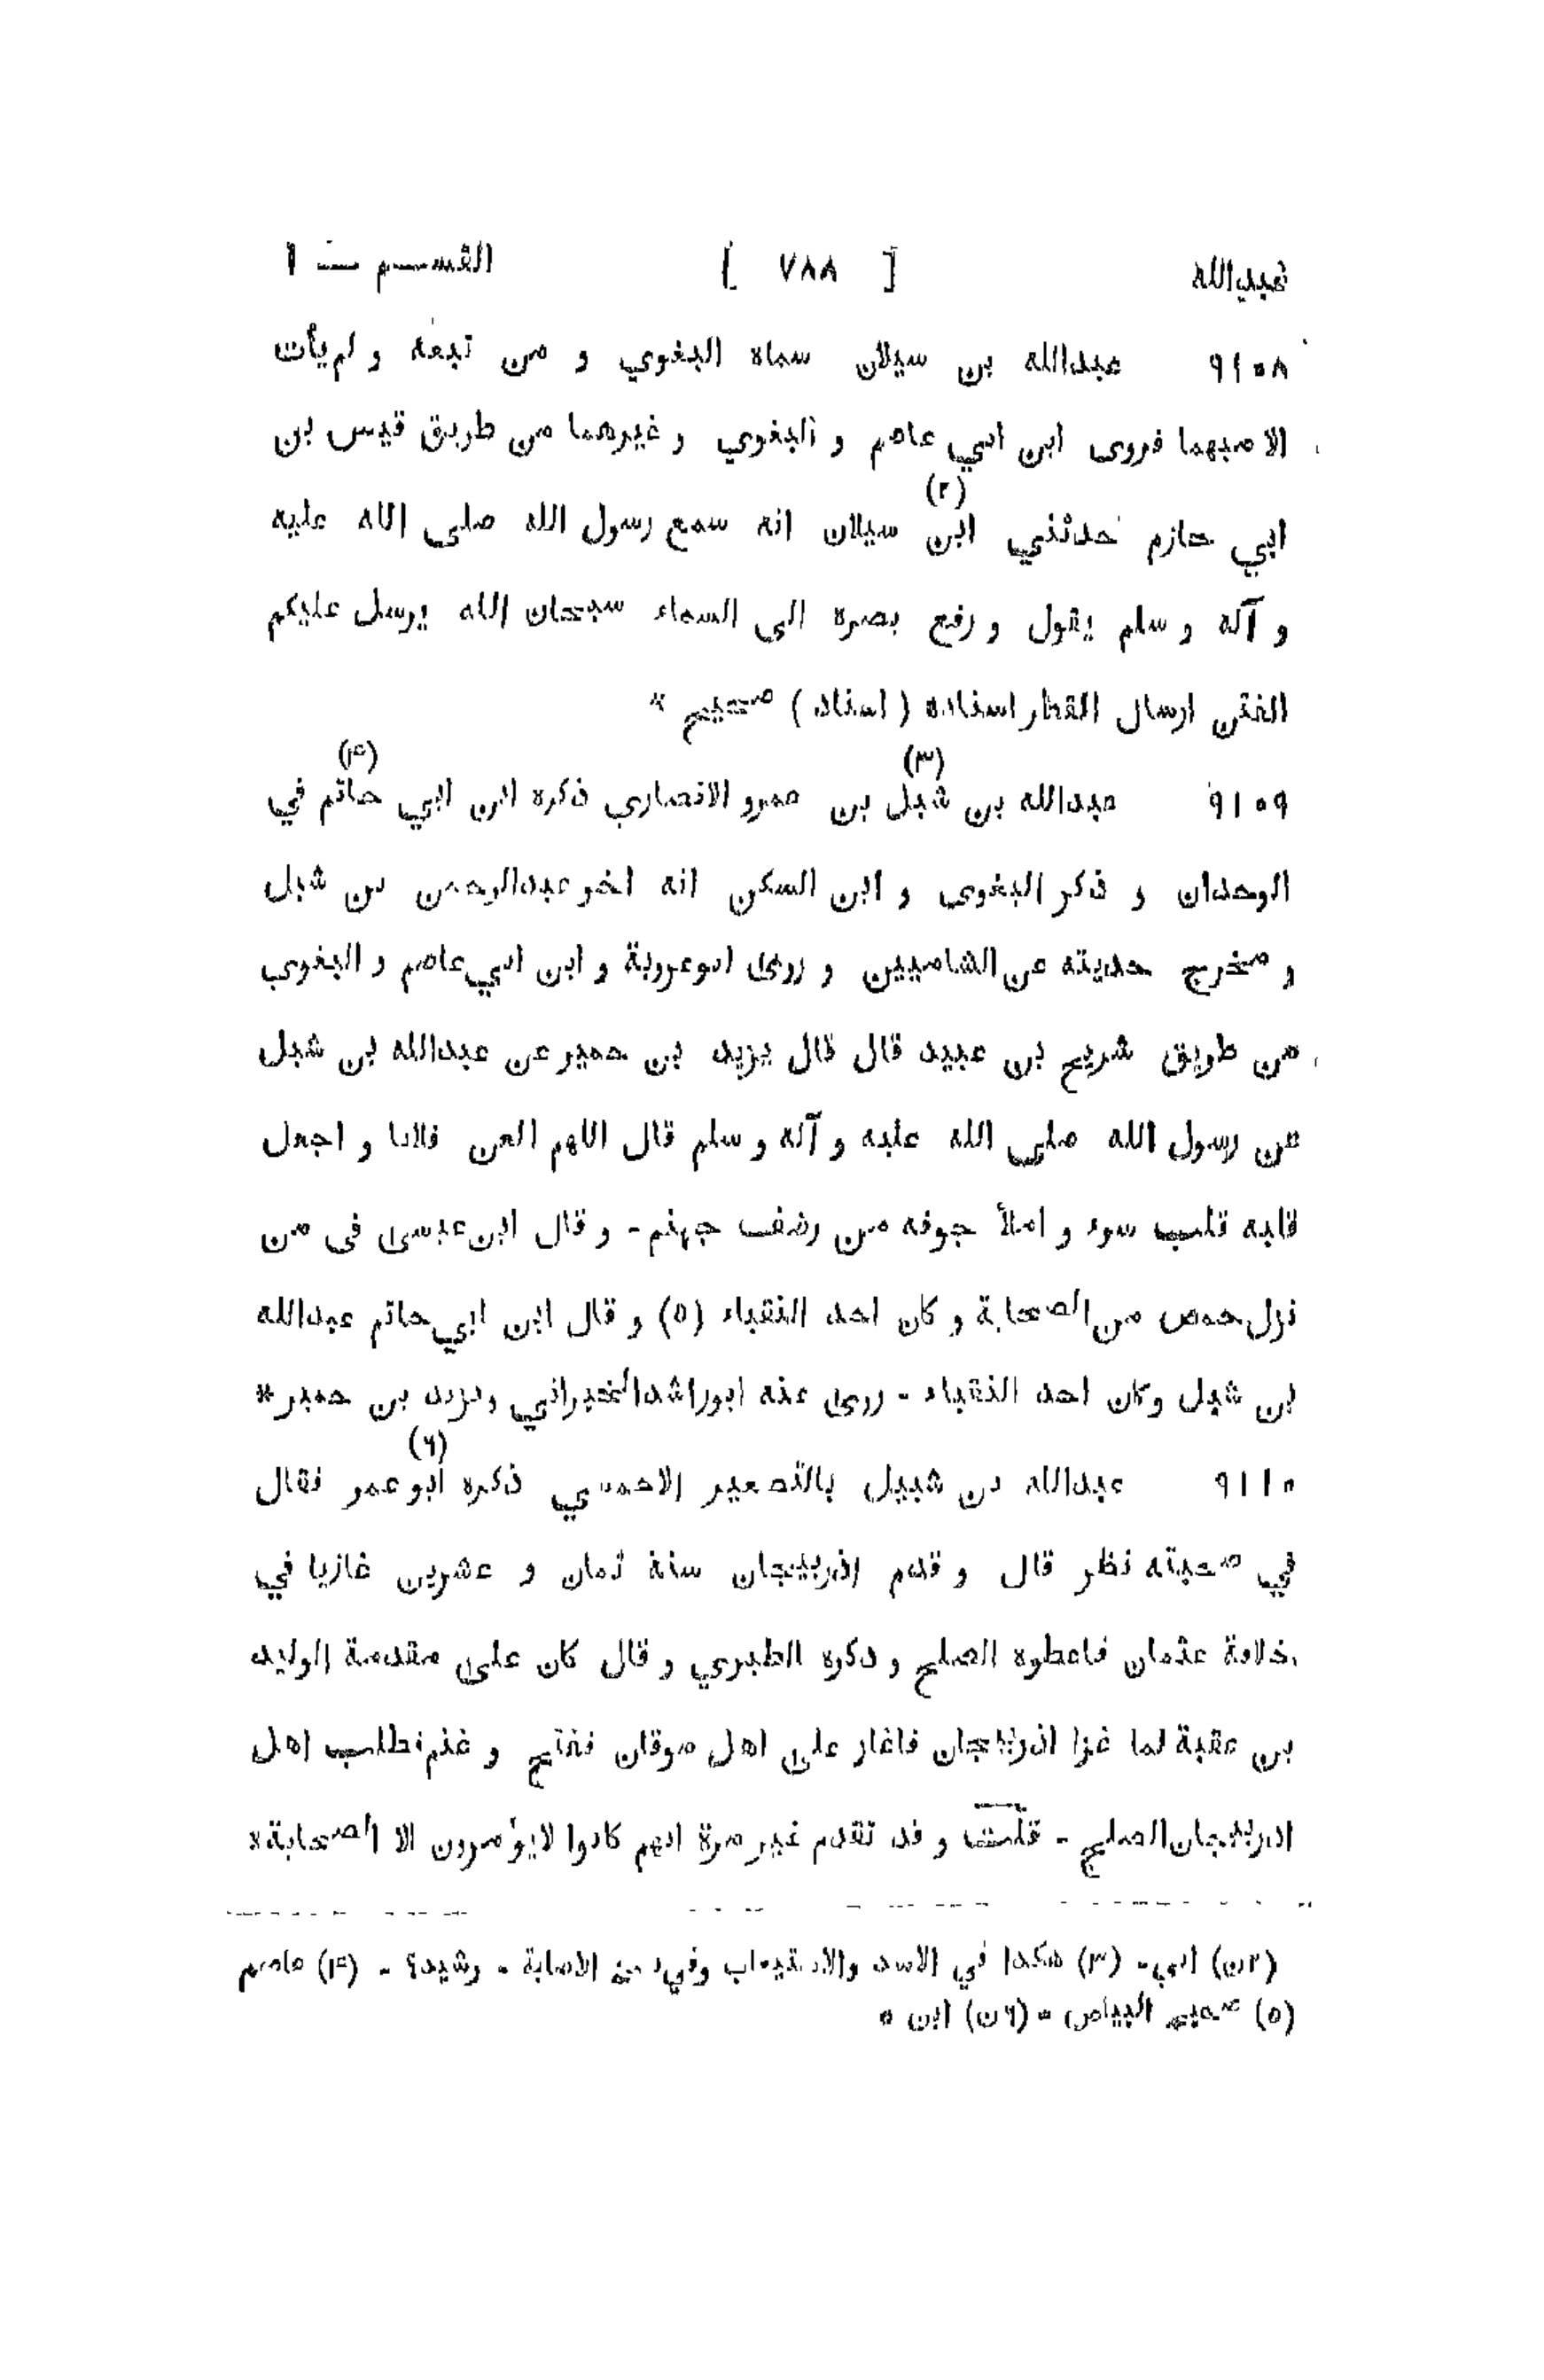 عبدالله [ ٧٨٨ ] القســم — ١
٩١٠٨ عبدالله بن سيلان سماه البغوي و من تبعه و لم يأت
الا مبهما فروى ابن ابي عاصم و البغوي و غيرهما من طريق قيس بن
ابي حازم حدثني ابن (٢) سيلان انه سمع رسول الله صلى الله عليه
و آله و سلم يقول و رفع بصره الى السماء سبحان الله يرسل عليكم
الفتن ارسال القطر اسناده ( اسناد ) صحيح *
٩١٠٩ عبدالله بن شبل (٣) بن عمرو الانصاري ذكره ابن ابي حاتم (۴) في
الوحدان و ذكر البغوى و ابن السكن انه اخو عبدالرحمن بن شبل
و مخرج حديثه عن الشاميين و روى ابو عروبة و ابن ابي عاصم و البغوي
من طريق شريح بن عبيد قال قال يزيد بن حمير عن عبدالله بن شبل
عن رسول الله صلى الله عليه و آله و سلم قال اللهم العن فلانا و اجعل
قلبه قلب سوء و املأ جوفه من رضف جهنم - و قال ابن عيسى فى من
نزل حمص من الصحابة و كان احد النقباء (٥) و قال ابن ابي حاتم عبدالله
ابن شبل وكان احد النقباء - روى عنه ابوراشد الخبراني ويزيد بن حمير *
٩١١٠ عبدالله بن شبيل بالتصغير الاحمسي ذكره ابو (٦) عمر فقال
في صحبته نظر قال و قدم اذربيجان سنة ثمان و عشرين غازيا في
خلافة عثمان فاعطوه الصلح و ذكره الطبري و قال كان على مقدمة الوليد
بن عقبة لما غزا اذربيجان فاغار على اهل موقان ففتح و غنم فطلب اهل
اذربيجان الصلح - قلت و قد تقدم غير مرة انهم كانوا لايؤمرون الا الصحابة *
(٢ن) ابي - (٣) هكذا في الاسد والاستيعاب وفي نسخ الاصابة - رشيد؟ - (۴) عاصم
(٥) صحيح البياض - (٦ن) ابن *